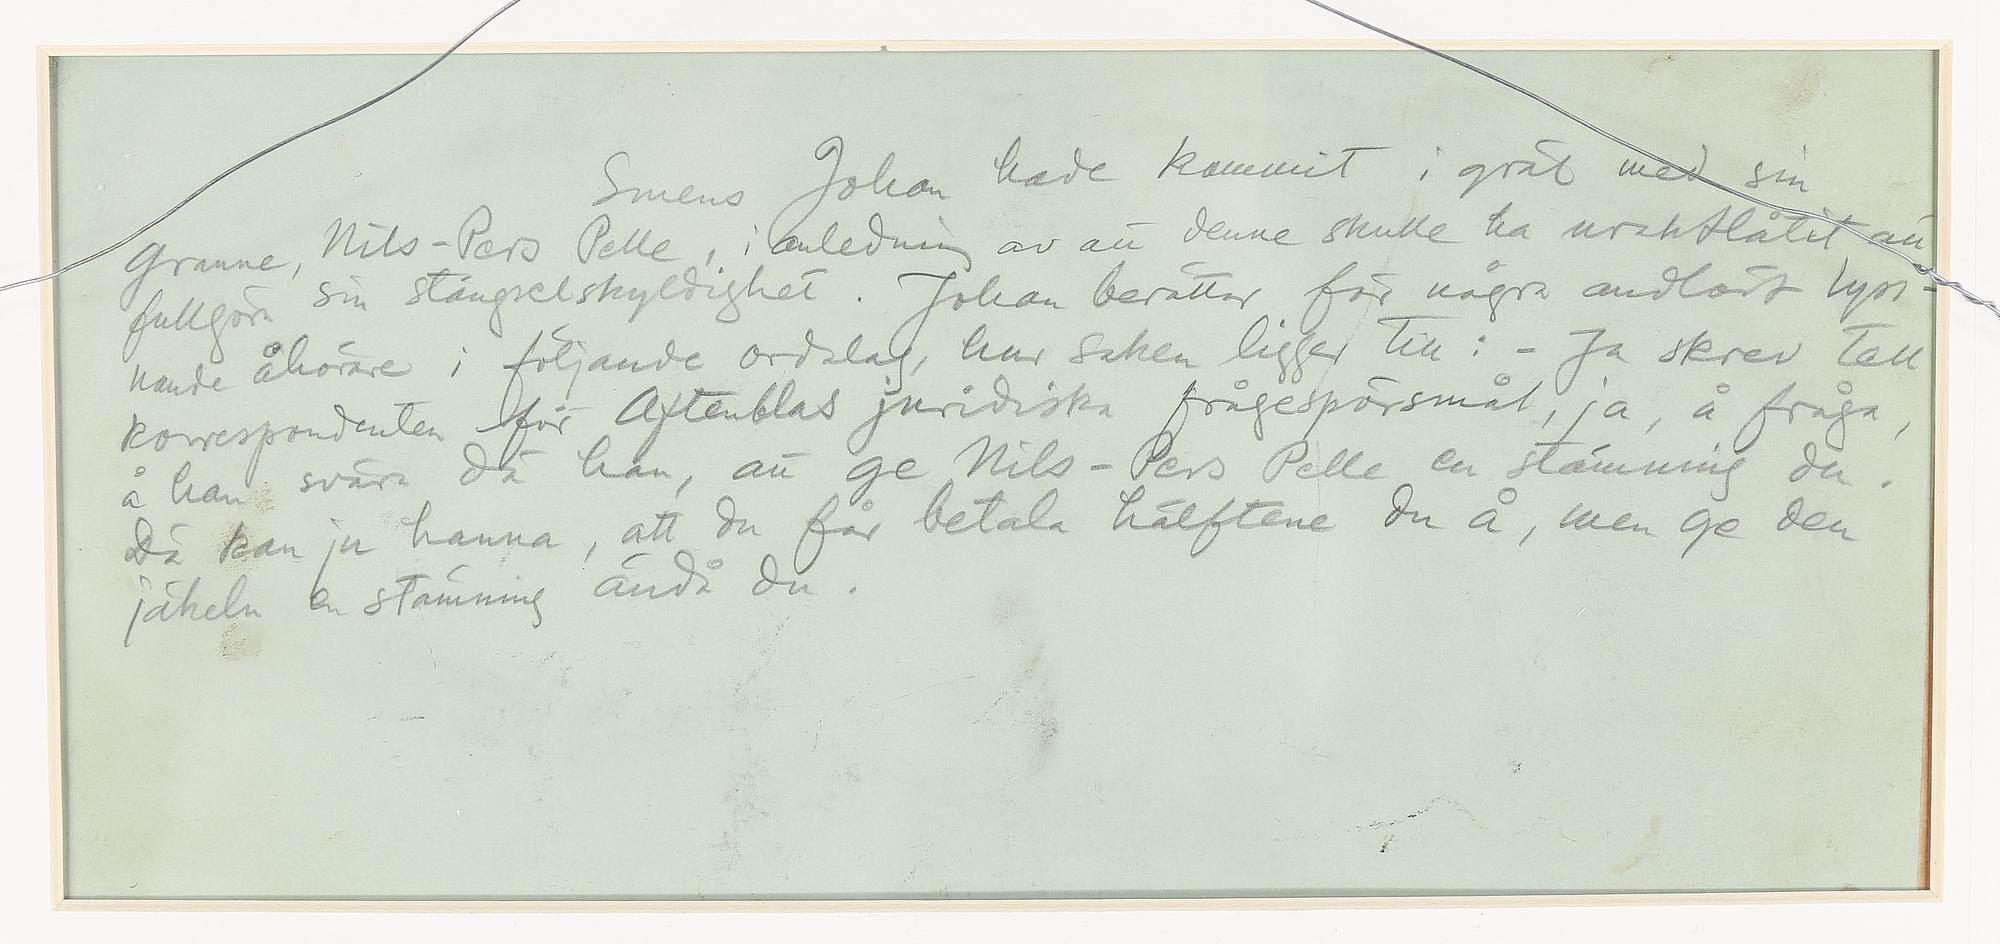 Smens Johan hade kommit i gräl med sin
granne, Nils-Pers Pelle, i anledning av att denne skulle ha uraktlåtit att
fullgöra sin stängselskyldighet. Johan berättar för några andlöst lyss-
nande åhörare i följande ordalag, hur saken ligger till: - Ja skrev tell
korrespondenten för Aftenblas juridiska frågespörsmål, ja, å fråga,
å han svara då han, att ge Nils-Pers Pelle en stämning du.
Dä kan ju hanna, att du får betala hälftene du å, men ge den
jäkeln en stämning ändå du.